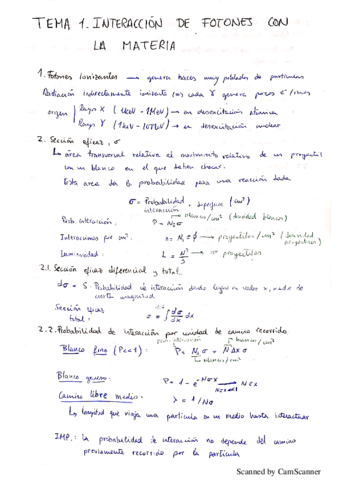 TEMA 1. INTERACCIÓN DE FOTONES CON
LA MATERIA
1. Fotones ionizantes → genera haces muy poblados de partículas
Radiación indirectamente ionizante cada γ genera pocos
origen Rayos X (1 keV - 1 MeV) → en desexcitación atómica
Rayos γ (1 keV - 10 MeV) → en desexcitación nuclear
2. Sección eficaz, σ
↳ área transversal relativa al movimiento relativo de un proyectil
con un blanco en el que deben chocar.
Esta area da la probabilidad para una reacción dada
σ = Probabilidad interacción, superficie (cm²)
→ blancos/cm² (densidad blancos)
Prob. interacción: P = N₂σ
Interacciones por cm²: N₁ → proyectiles/cm² (densidad proyectiles)
Luminosidad: L = → nº proyectiles
2.1. Sección eficaz diferencial y total.
dσ = Probabilidad de interacción
cierta magnitud
Sección eficaz total: σ = ∫ dσ/dx dx
2.2. Probabilidad de interacción por unidad de camino recorrido
Blanco fino (P<<1): P = N₂σ = NΔxσ
blancos/cm²
Blanco grueso: P = 1 - e^(-Nσx)
Camino libre medio: λ = 1/Nσ
↳ longitud que viaja una partícula en un medio hasta interactuar
IMP.: la probabilidad de interacción no depende del camino
previamente recorrido por la partícula
Scanned by CamScanner